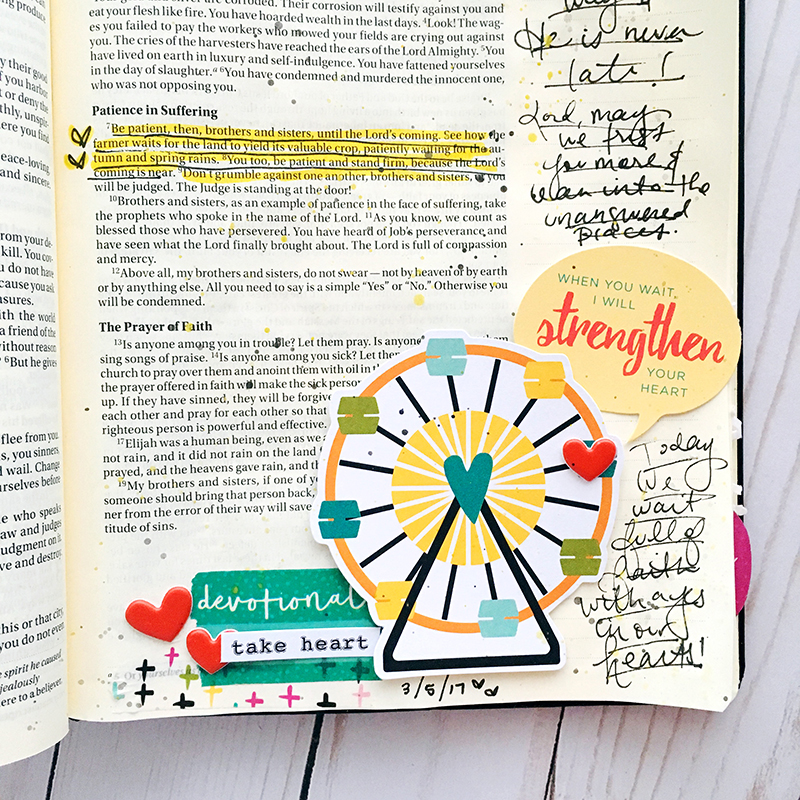 producing
y their good
f you harbor
t or deny the
thly, unspir-
here you find
eace-loving,
and sincere.
rom your de-
kill. You cov-
u do not have
cause you ask
asures.
with the world
a friend of the
without reason
6But he gives
flee from you.
s, you sinners,
d wail. Change
urselves before
he who speaks
aw and judges
udgment on it.
ve and destroy.
this or that city,
you do not even
e spirit he caused
jealously
ere to a believer.
silver are corroded. Their corrosion will testify against you and
eat your flesh like fire. You have hoarded wealth in the last days. 4Look! The wag-
es you failed to pay the workers who mowed your fields are crying out against
you. The cries of the harvesters have reached the ears of the Lord Almighty. 5You
have lived on earth in luxury and self-indulgence. You have fattened yourselves
in the day of slaughter.a 6You have condemned and murdered the innocent one,
who was not opposing you.
Patience in Suffering
7Be patient, then, brothers and sisters, until the Lord's coming. See how the
farmer waits for the land to yield its valuable crop, patiently waiting for the au-
tumn and spring rains. 8You too, be patient and stand firm, because the Lord's
coming is near. 9Don't grumble against one another, brothers and sisters, or you
will be judged. The Judge is standing at the door!
10Brothers and sisters, as an example of patience in the face of suffering, take
the prophets who spoke in the name of the Lord. 11As you know, we count as
blessed those who have persevered. You have heard of Job's perseverance and
have seen what the Lord finally brought about. The Lord is full of compassion
and mercy.
12Above all, my brothers and sisters, do not swear — not by heaven or by earth
or by anything else. All you need to say is a simple "Yes" or "No." Otherwise you
will be condemned.
The Prayer of Faith
13Is anyone among you in trouble? Let them pray. Is anyone them
sing songs of praise. 14Is anyone among you sick? Let them
church to pray over them and anoint them with oil in
the prayer offered in faith will make the sick person
up. If they have sinned, they will be forgive
each other and pray for each other so that
righteous person is powerful and effective.
17Elijah was a human being, even as we
not rain, and it did not rain on the land
prayed, and the heavens gave rain, and the
19My brothers and sisters, if one of y
someone should bring that person back,
ner from the error of their way will save
titude of sins.
a 5 Or yourselves
He is never
late!
Lord, may
we trust
you more &
lean into the
unanswered
places.
WHEN YOU WAIT,
I WILL
strengthen
YOUR
HEART
Today
we
wait
full of
faith
with
hearts!
devotional
take heart
3/5/17